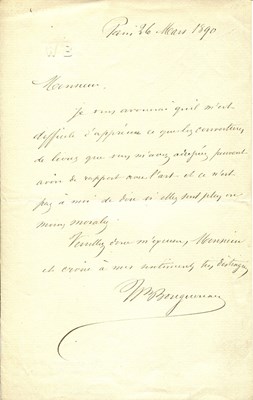 Paris 26 Mars 1890
Monsieur,
Je vous avouerai qu'il m'est
difficile d'apprécier ce que les couvertures
de livres que vous m'avez adressées peuvent
avoir de rapport avec l'art et ce n'est
pas à moi de dire si elles sont plus ou
moins morales.
Veuillez donc m'excuser, Monsieur
et croire à mes sentiments très distingués
W Bouguereau